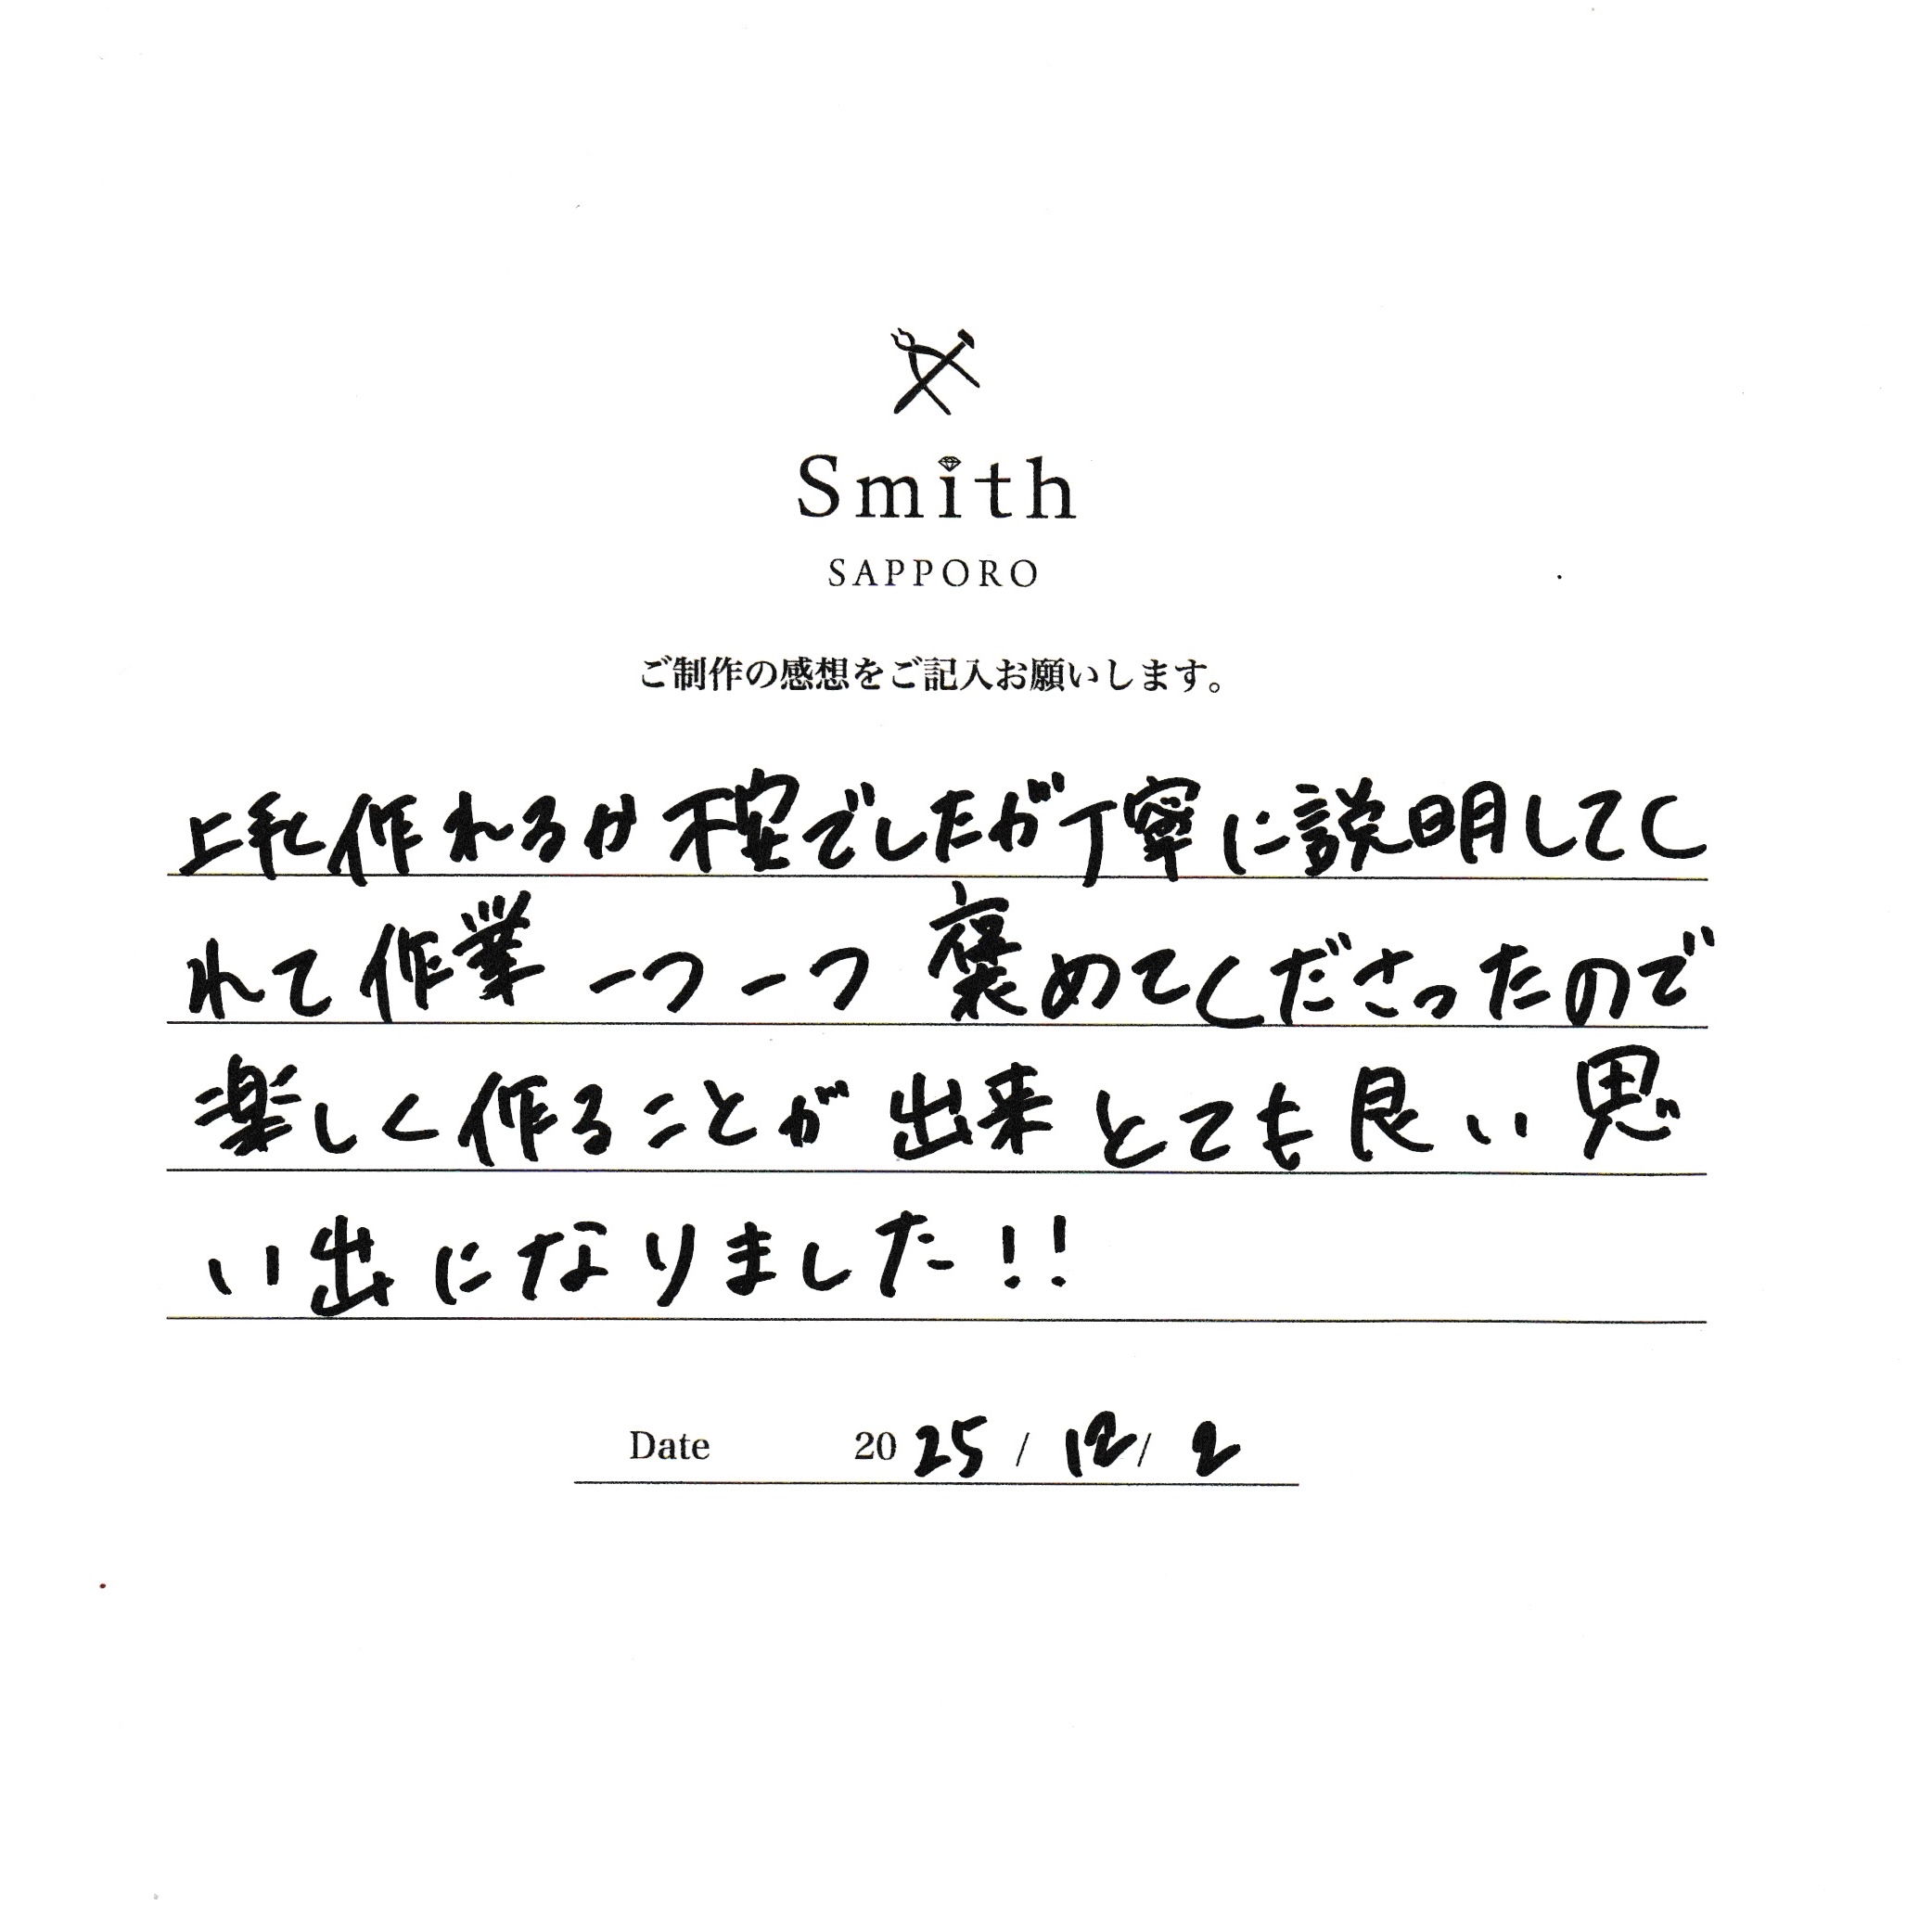 Smith
SAPPORO
ご制作の感想をご記入お願いします。
上手に作れるか不安でしたが丁寧に説明してく
れて作業一つ一つ褒めてくださったので
楽しく作ることが出来とても良い思
い出になりました!!
Date 2025 / 12 / 2